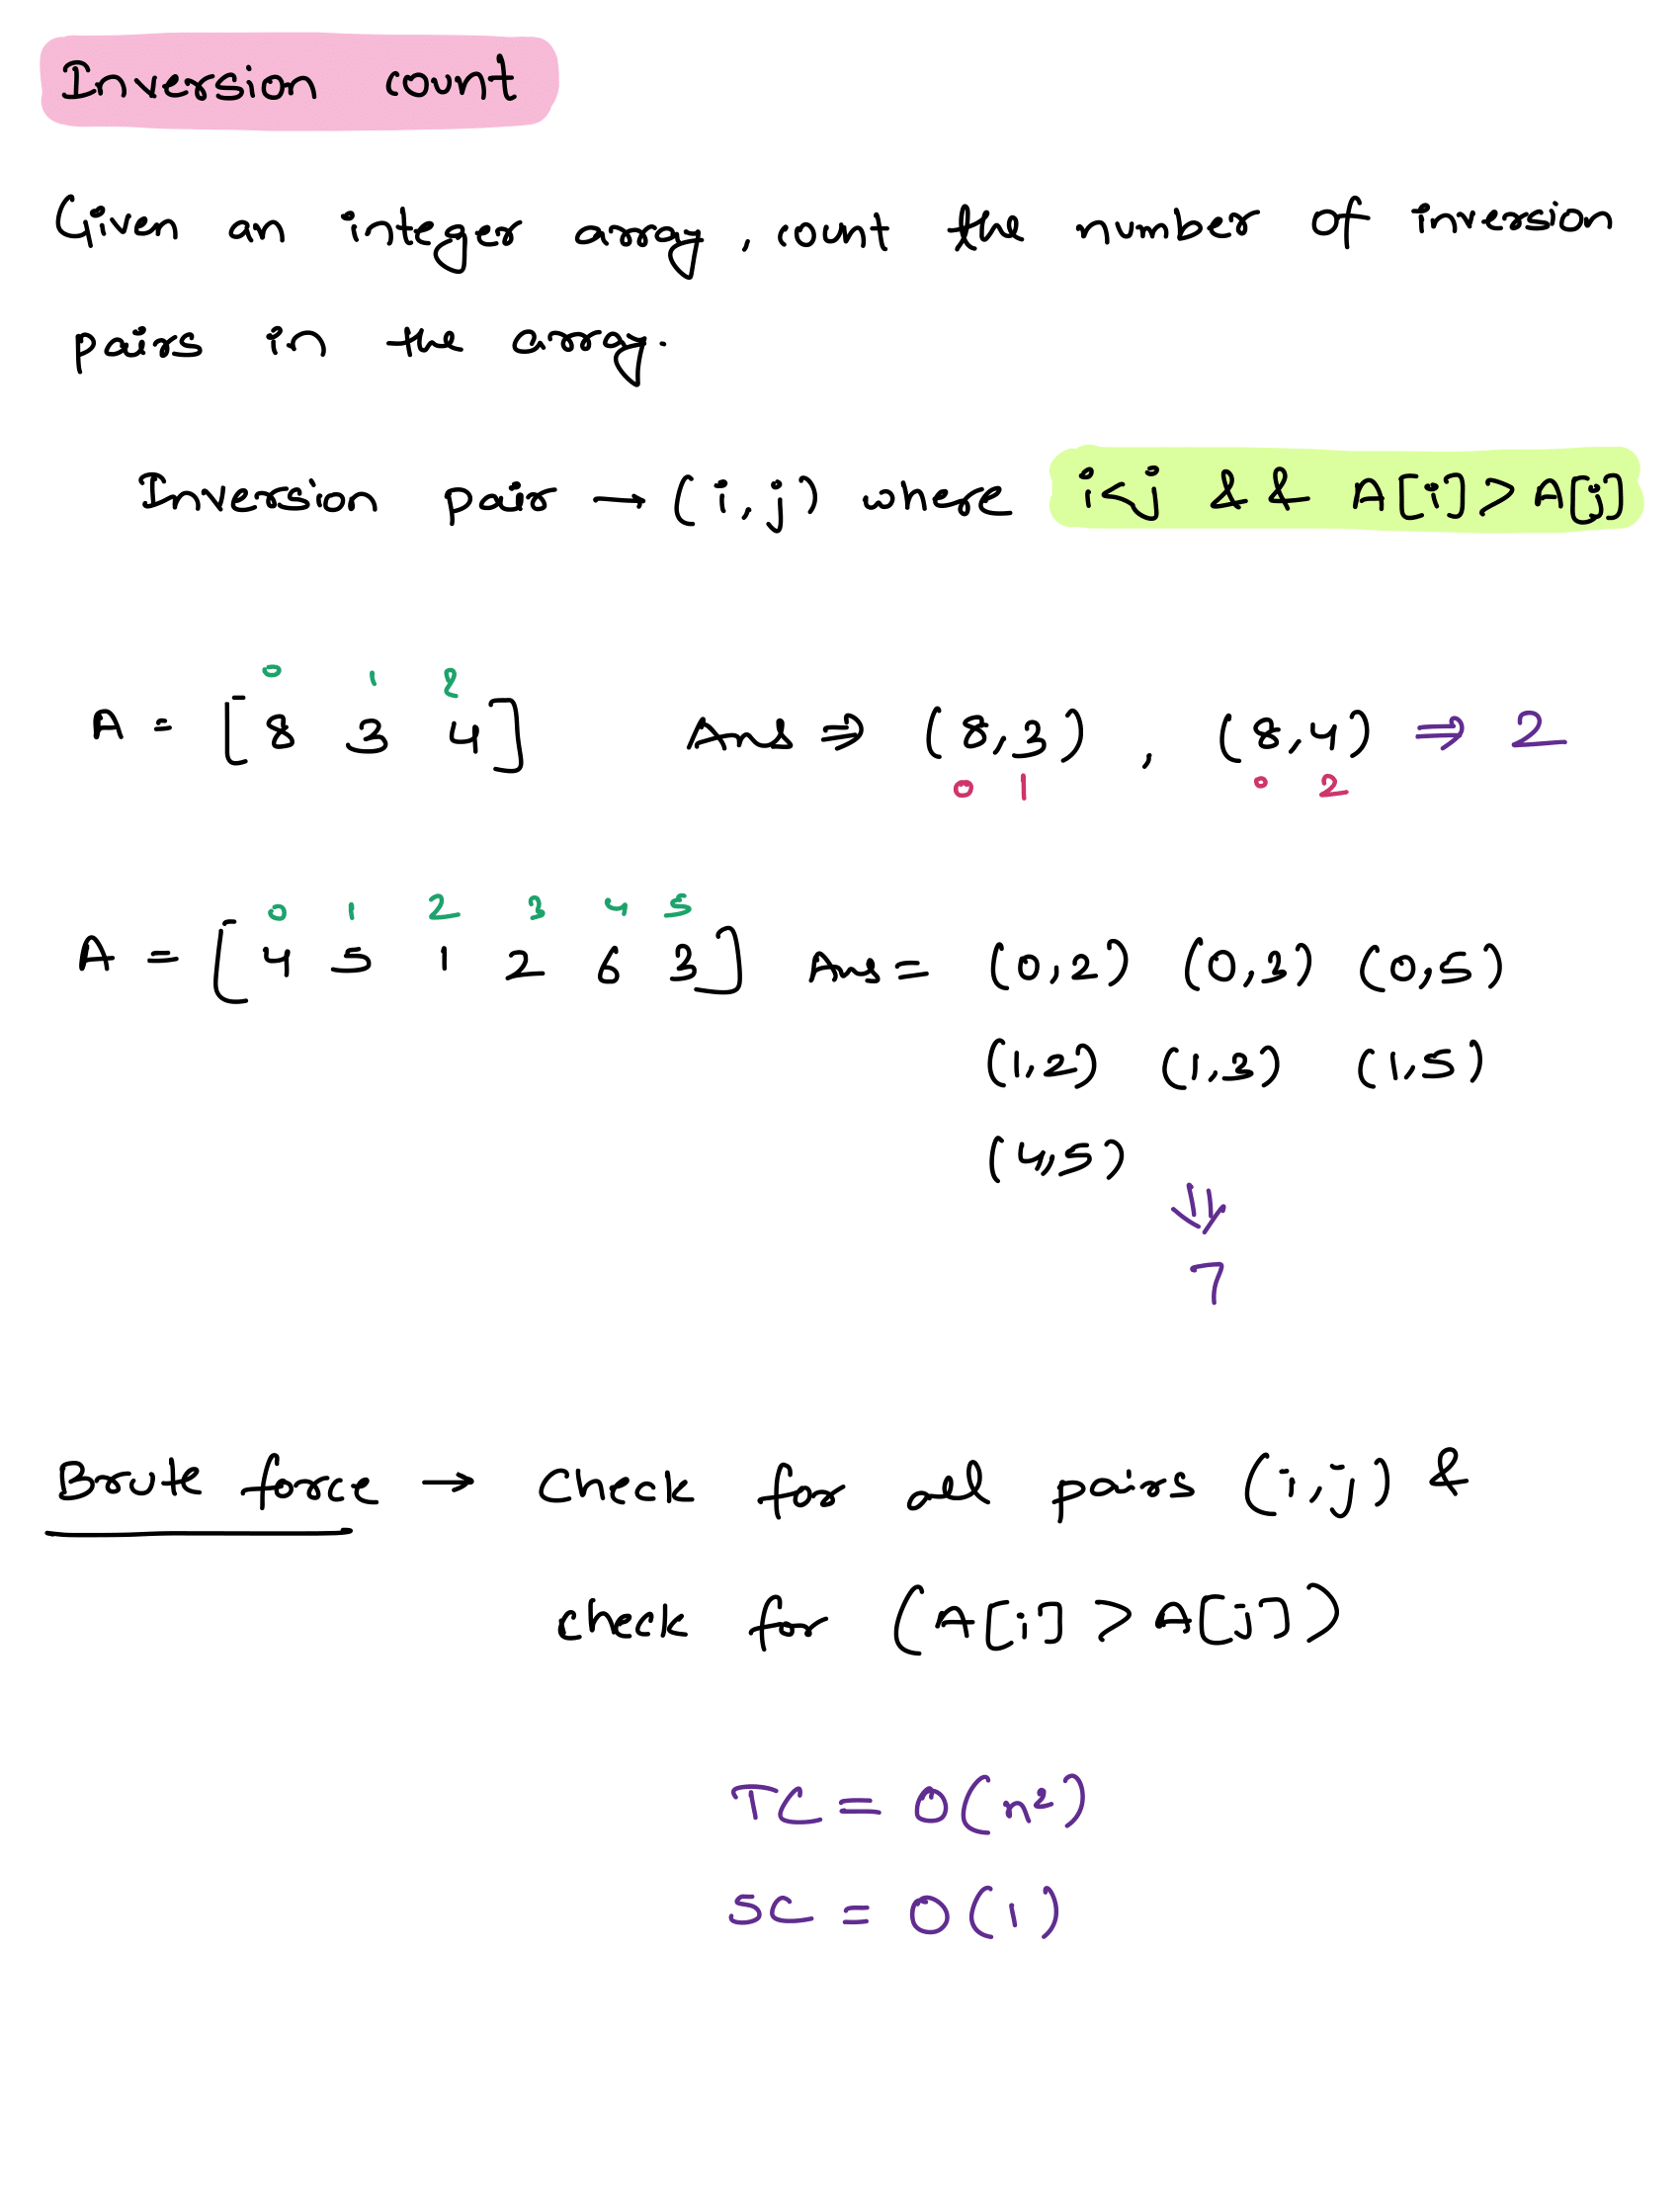 Inversion count
Given an integer array, count the number of inversion
pairs in the array.
Inversion pair → (i,j) where i<j && A[i]>A[j]
0 1 2
A = [8 3 4] Ans ⇒ (8,3) , (8,4) ⇒ 2
0 1 0 2
0 1 2 3 4 5
A = [4 5 1 2 6 3] Ans = (0,2) (0,3) (0,5)
(1,2) (1,3) (1,5)
(4,5)
⇓
7
Brute force → Check for all pairs (i,j) &
check for (A[i] > A[j])
TC = O(n²)
SC = O(1)